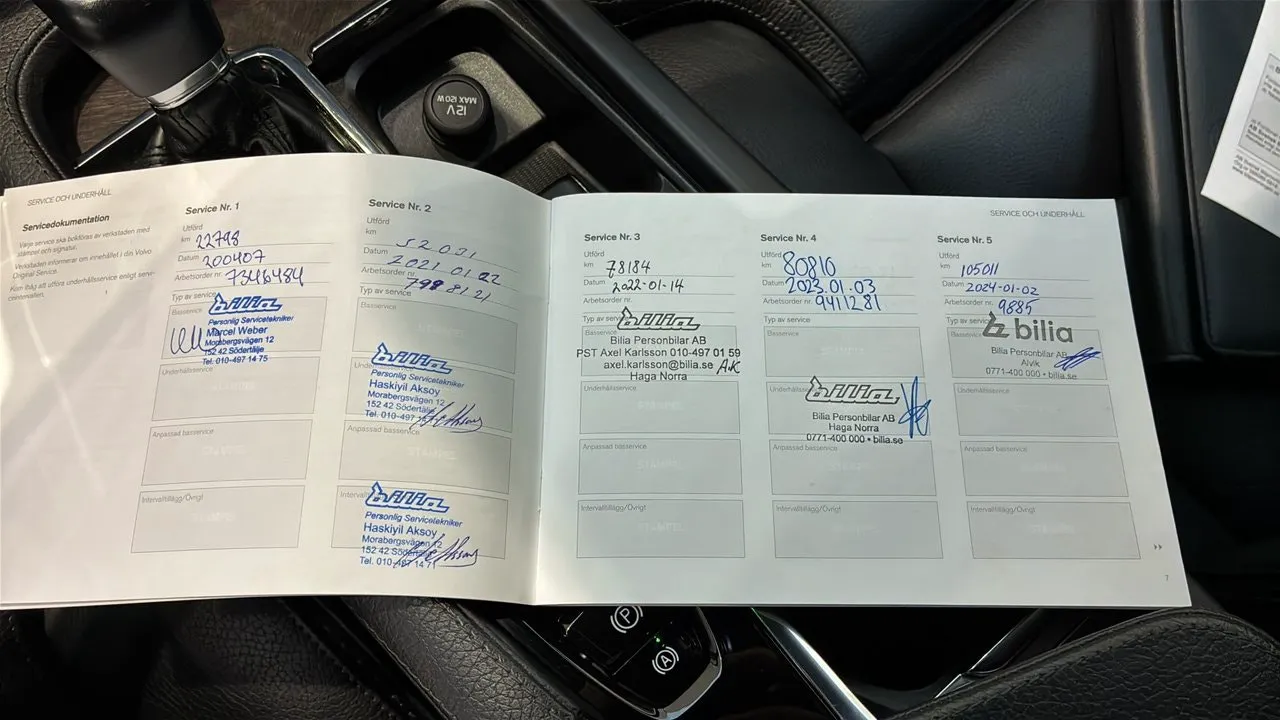 12V
MAX 120W
SERVICE OCH UNDERHÅLL
Servicedokumentation
Varje service ska bokföras av verkstaden med
stämpel och signatur.
Verkstaden informerar om innehållet i din Volvo
Original Service.
Kom ihåg att utföra underhållsservice enligt servi-
Service Nr. 1
Utförd
km 22798
Datum 200407
Arbetsorder nr. 7346484
Typ av service
Basservice
bilia
Personlig Servicetekniker
Marcel Weber
Morabergsvägen 12
152 42 Södertälje
Tel. 010-497 14 75
Underhållsservice
Anpassad basservice
STÄMPEL
Intervalltillägg/Övrigt
STÄMPEL
Service Nr. 2
Utförd
km 52031
Datum 2021 01 22
Arbetsorder nr. 7988121
Typ av service
Basservice
STÄMPEL
bilia
Personlig Servicetekniker
Haskiyil Aksoy
Morabergsvägen 12
152 42 Södertälje
Tel. 010-497
Anpassad basservice
STÄMPEL
bilia
Personlig Servicetekniker
Haskiyil Aksoy
Morabergsvägen 12
152 42 Södertälje
Tel. 010-497 14 71
SERVICE OCH UNDERHÅLL
Service Nr. 3
Utförd
km 78184
Datum 2022-01-14
Arbetsorder nr.
Typ av service
Basservice
bilia
Bilia Personbilar AB
PST Axel Karlsson 010-497 01 59
axel.karlsson@bilia.se AK
Haga Norra
Underhållsservice
STÄMPEL
Anpassad basservice
STÄMPEL
Intervalltillägg/Övrigt
STÄMPEL
Service Nr. 4
Utförd
km 80810
Datum 2023.01.03
Arbetsorder nr. 9411281
Typ av service
Basservice
STÄMPEL
Underhållsservice
bilia
Bilia Personbilar AB
Haga Norra
0771-400 000 • bilia.se
Anpassad basservice
STÄMPEL
Intervalltillägg/Övrigt
STÄMPEL
Service Nr. 5
Utförd
km 105011
Datum 2024-01-02
Arbetsorder nr. 9885
Typ av service
Basservice
bilia
Bilia Personbilar AB
Alvik
0771-400 000 • bilia.se
Underhållsservice
STÄMPEL
Anpassad basservice
STÄMPEL
Intervalltillägg/Övrigt
STÄMPEL
7
P
A